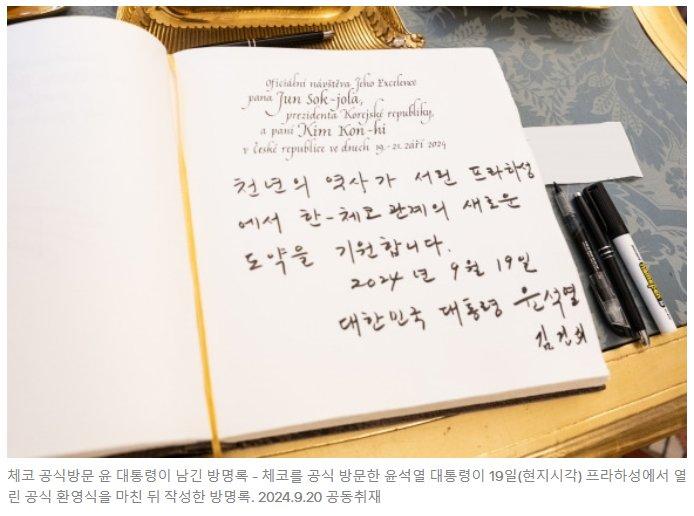 Oficiální návštěva Jeho Excelence
pana Jun Sok-jola,
prezidenta Korejské republiky,
a paní Kim Kon-hi
v České republice ve dnech 19.-21. září 2024
천년의 역사가 서린 프라하성
에서 한-체코관계의 새로운
도약을 기원합니다.
2024년 9월 19일
대한민국 대통령 윤석열
김건희
체코 공식방문 윤 대통령이 남긴 방명록 - 체코를 공식 방문한 윤석열 대통령이 19일(현지시각) 프라하성에서 열
린 공식 환영식을 마친 뒤 작성한 방명록. 2024.9.20 공동취재